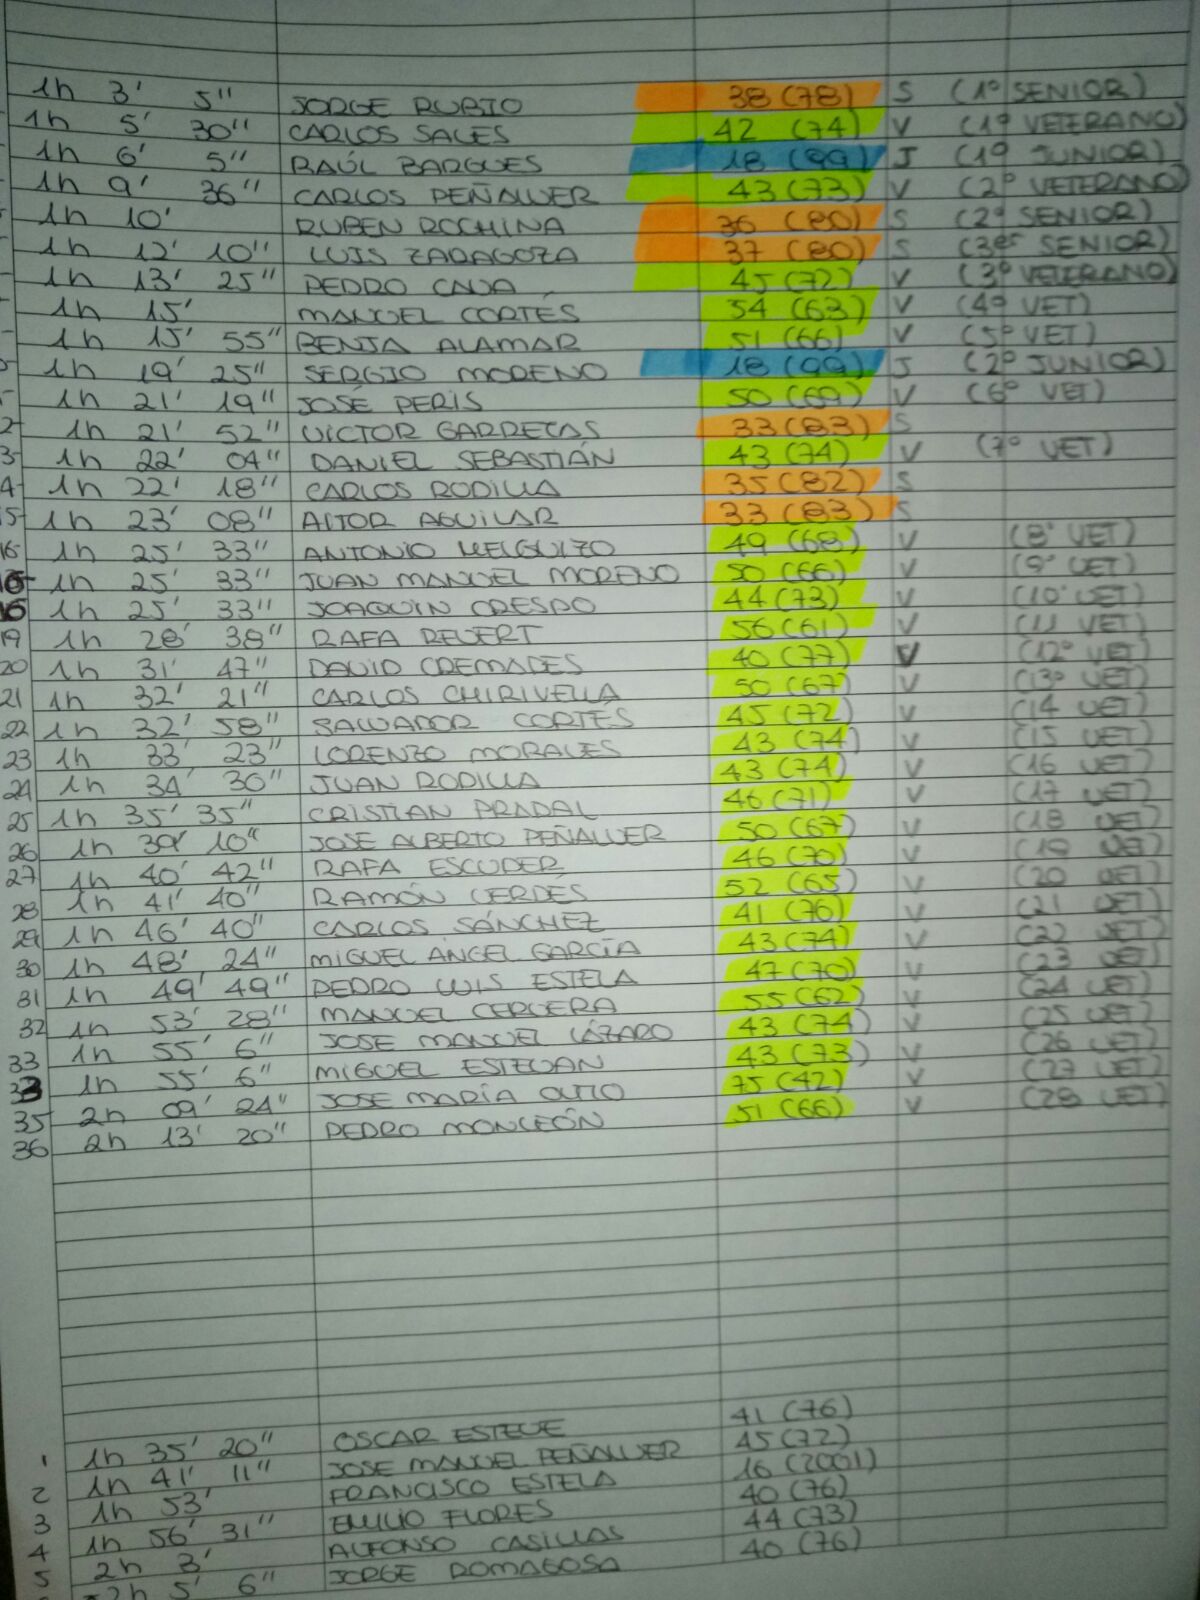 1h 3' 5" JORGE RUBIO 38 (78) S (1º SENIOR)
1h 5' 30" CARLOS SALES 42 (74) V (1º VETERANO)
1h 6' 5" RAÚL BARGUES 18 (99) J (1º JUNIOR)
1h 9' 36" CARLOS PEÑALVER 43 (73) V (2º VETERANO)
1h 10' RUBEN ROCHINA 36 (80) S (2º SENIOR)
1h 12' 10" LUIS ZARAGOZA 37 (80) S (3er SENIOR)
1h 13' 25" PEDRO 45 (72) V (3º VETERANO)
1h 15' MANUEL CORTÉS 54 (63) V (4º VET)
1h 15' 55" BENJA ALAMAR 51 (66) V (5º VET)
1h 19' 25" SERGIO MORENO 18 (99) J (2º JUNIOR)
1h 21' 19" JOSÉ PERIS 50 (69) V (6º VET)
1h 21' 52" VICTOR 33 (83) S
1h 22' 04" DANIEL SEBASTIÁN 43 (74) V (7º VET)
1h 22' 18" CARLOS RODILLA 35 (82) S
1h 23' 08" AITOR AGUILAR 33 (83) S
16 1h 25' 33" ANTONIO MELGUIZO 49 (68) V (8º VET)
16 1h 25' 33" JUAN MANUEL MORENO 50 (66) V (9º VET)
16 1h 25' 33" JOAQUÍN CRESPO 44 (73) V (10º VET)
19 1h 28' 38" RAFA REVERT 56 (61) V (11 VET)
20 1h 31' 47" DAVID CREMADES 40 (77) V (12º VET)
21 1h 32' 21" CARLOS CHIRIVELLA 50 (67) V (13º VET)
22 1h 32' 58" SALVADOR CORTÉS 45 (72) V (14 VET)
23 1h 33' 23" LORENZO MORALES 43 (74) V (15 VET)
24 1h 34' 30" JUAN RODILLA 43 (74) V (16 VET)
25 1h 35' 35" CRISTIAN PRADAL 46 (71) V (17 VET)
26 1h 39' 10" JOSE ALBERTO PEÑALVER 50 (67) V (18 VET)
27 1h 40' 42" RAFA ESCUDER 46 (70) V (19 VET)
28 1h 41' 40" RAMÓN VERDÉS 52 (65) V (20 VET)
29 1h 46' 40" CARLOS SÁNCHEZ 41 (76) V (21 VET)
30 1h 48' 24" MIGUEL ÁNGEL GARCÍA 43 (74) V (22 VET)
31 1h 49' 49" PEDRO LUIS ESTELA 47 (70) V (23 VET)
32 1h 53' 28" MANUEL CERVERA 55 (62) V (24 VET)
33 1h 55' 6" JOSE MANUEL LÁZARO 43 (74) V (25 VET)
33 1h 55' 6" MIGUEL ESTEVAN 43 (73) V (26 VET)
35 2h 09' 24" JOSE MARÍA 75 (42) V (27 VET)
36 2h 13' 20" PEDRO MONLEÓN 51 (66) V (28 VET)
1 1h 35' 20" OSCAR ESTEVE 41 (76)
2 1h 41' 11" JOSE MANUEL PEÑALVER 45 (72)
3 1h 53' FRANCISCO ESTELA 16 (2001)
4 1h 56' 31" EMILIO FLORES 40 (76)
5 2h 3' ALFONSO CASILLAS 44 (73)
2h 5' 6" JORGE ROMAGOSA 40 (76)